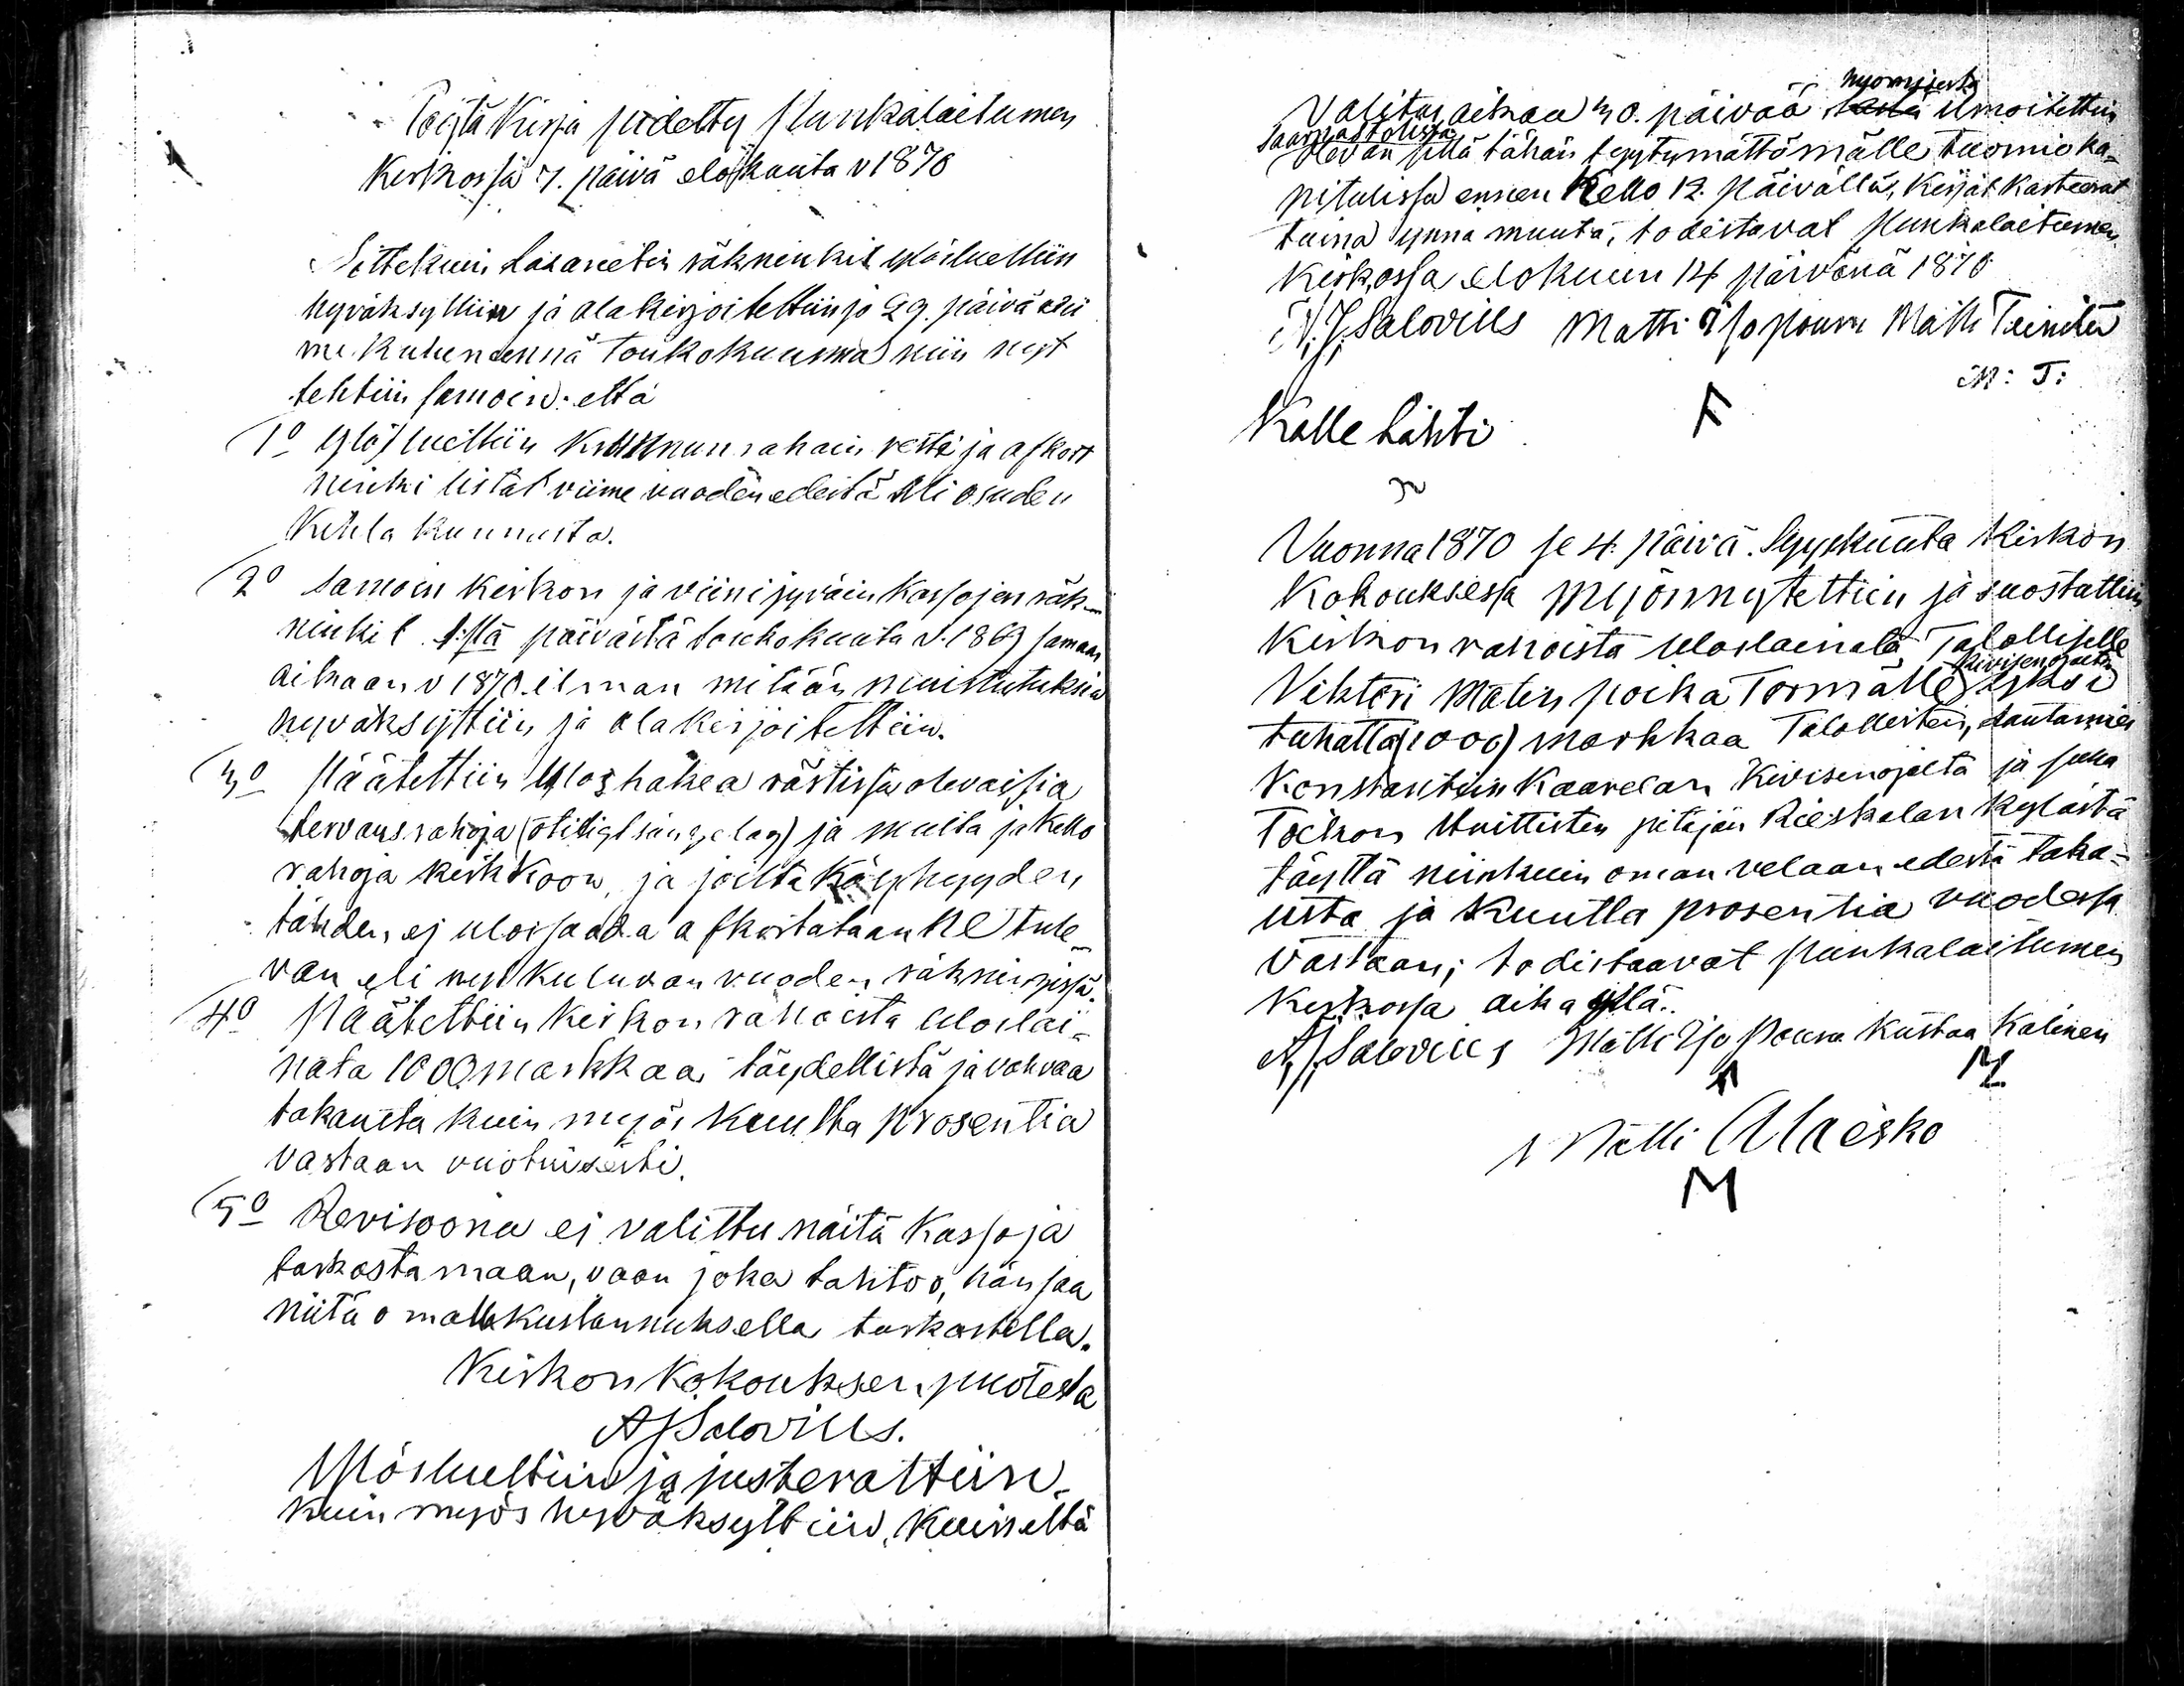 Pöytä Kirja pidetty Punkalaitumen
Kirkossa 7. päivä elokuuta v 1870
Sittekuin Lasaretin räkninkit ylösluettiin
hyväksyttiin ja alakirjoitettiin jo 29. päivä
me kuluneenna Toukokuussa niin nyt
tehtiin samoin: että
1º Ylösluettiin Kruunun rahain resti ja afkort
ninki listat viime vuoden edestä eli osuden
Kihla kunnasta.
2º Samoin Kirkon ja viinijyväin Kassojen räk-
ninkit 1:stä päivästä toukokuuta v. 1869 samaan
aikaan v 1870. ilman mitään muistutuksia
hyväksyttiin ja alakirjoitettiin.
3º Päätettiin Ulos hakea rästissä olevaisia
tervaus rahoja ja multa ja Kello
rahoja kirkkoon, ja joilta Köyhyyden
tähden ej ulossaada afkortataan ne tule-
van eli nyt kuluvan vuoden räkningissä.
4º Päätettiin Kirkon rahoista uloslai-
nata 1000 markkaa täydellistä ja vahvaa
takausta kuin myös kuutta prosentia
vastaan vuotuisesti.
5º Revisoona ej valittu näitä Kassoja
tarkastamaan, vaan joka tahtoo, hän saa
niitä omalla kustannuksella tarkastella.
Kirkon Kokouksen puolesta
AJSalovius.
Ylösluettiin ja justerattiin
kuin myös hyväksyttiin, Kuin että
huomisesta
Valitus aikaa 30. päivää tästä ilmoitettiin
olevan sillä tähän tyytymättömälle tuomioka-
pitulissa ennen Kello 12. päivällä, Kirjat
tuina ynnä muuta, todistavat Punkalaitumen
Kirkossa elokuun 14 päivänä 1870
A.J.Salovius Matti Isopouru Matti
M: T:
Kalle Lähti
Vuonna 1870 se 4. Päivä Syyskuuta Kirkon
Kokouksessa myönnytettiin ja suostuttiin
Kirkon rahoista uloslainata Talolliselle
Kivisenojalta
Vihtori Matin poika Tormälle yksi
tuhatta (1000) markkaa Talollisten, Lautamies
Konstantiin Kaarelan Kivisenojalta ja
Huittisten pitäjän Rieskalan Kylästä
täyttä niinkuin oman velaan edestä taka-
usta ja Kuutta prosentia vuodessa
vastaan; todistaavat Punkalaitumen
Kirkossa aika yllä.
AJSalovius Matti Isopouru Kustaa Kalinen
Matti Alaesko
M